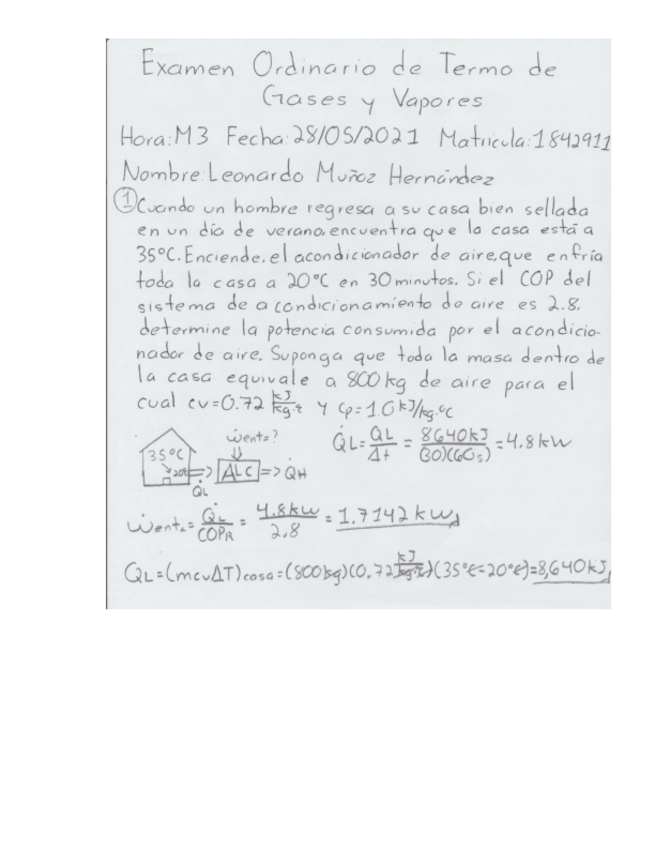 Examen Ordinario de Termo de
Gases y Vapores
Hora:M3 Fecha:28/05/2021 Matricula:1842911
Nombre:Leonardo Muñoz Hernández
① Cuando un hombre regresa a su casa bien sellada
en un día de verano, encuentra que la casa está a
35°C. Enciende, el acondicionador de aire, que enfría
toda la casa a 20°C en 30 minutos. Si el COP del
sistema de acondicionamiento de aire es 2.8,
determine la potencia consumida por el acondicio-
nador de aire. Suponga que toda la masa dentro de
la casa equivale a 800 kg de aire para el
cual cv=0.72 kJ/kg·°C y cp=1.0 kJ/kg.°C
Ẇent=? Q̇L = QL/Δt = 8640kJ/(30)(60s) = 4.8 kW
35°C 20°C => A.C => Q̇H
Q̇L
Ẇent.= Q̇L/COPR = 4.8kW/2.8 = 1.7142 kW
QL=(mcvΔT)casa=(800kg)(0.72 kJ/kg·°C)(35°C-20°C)=8,640kJ